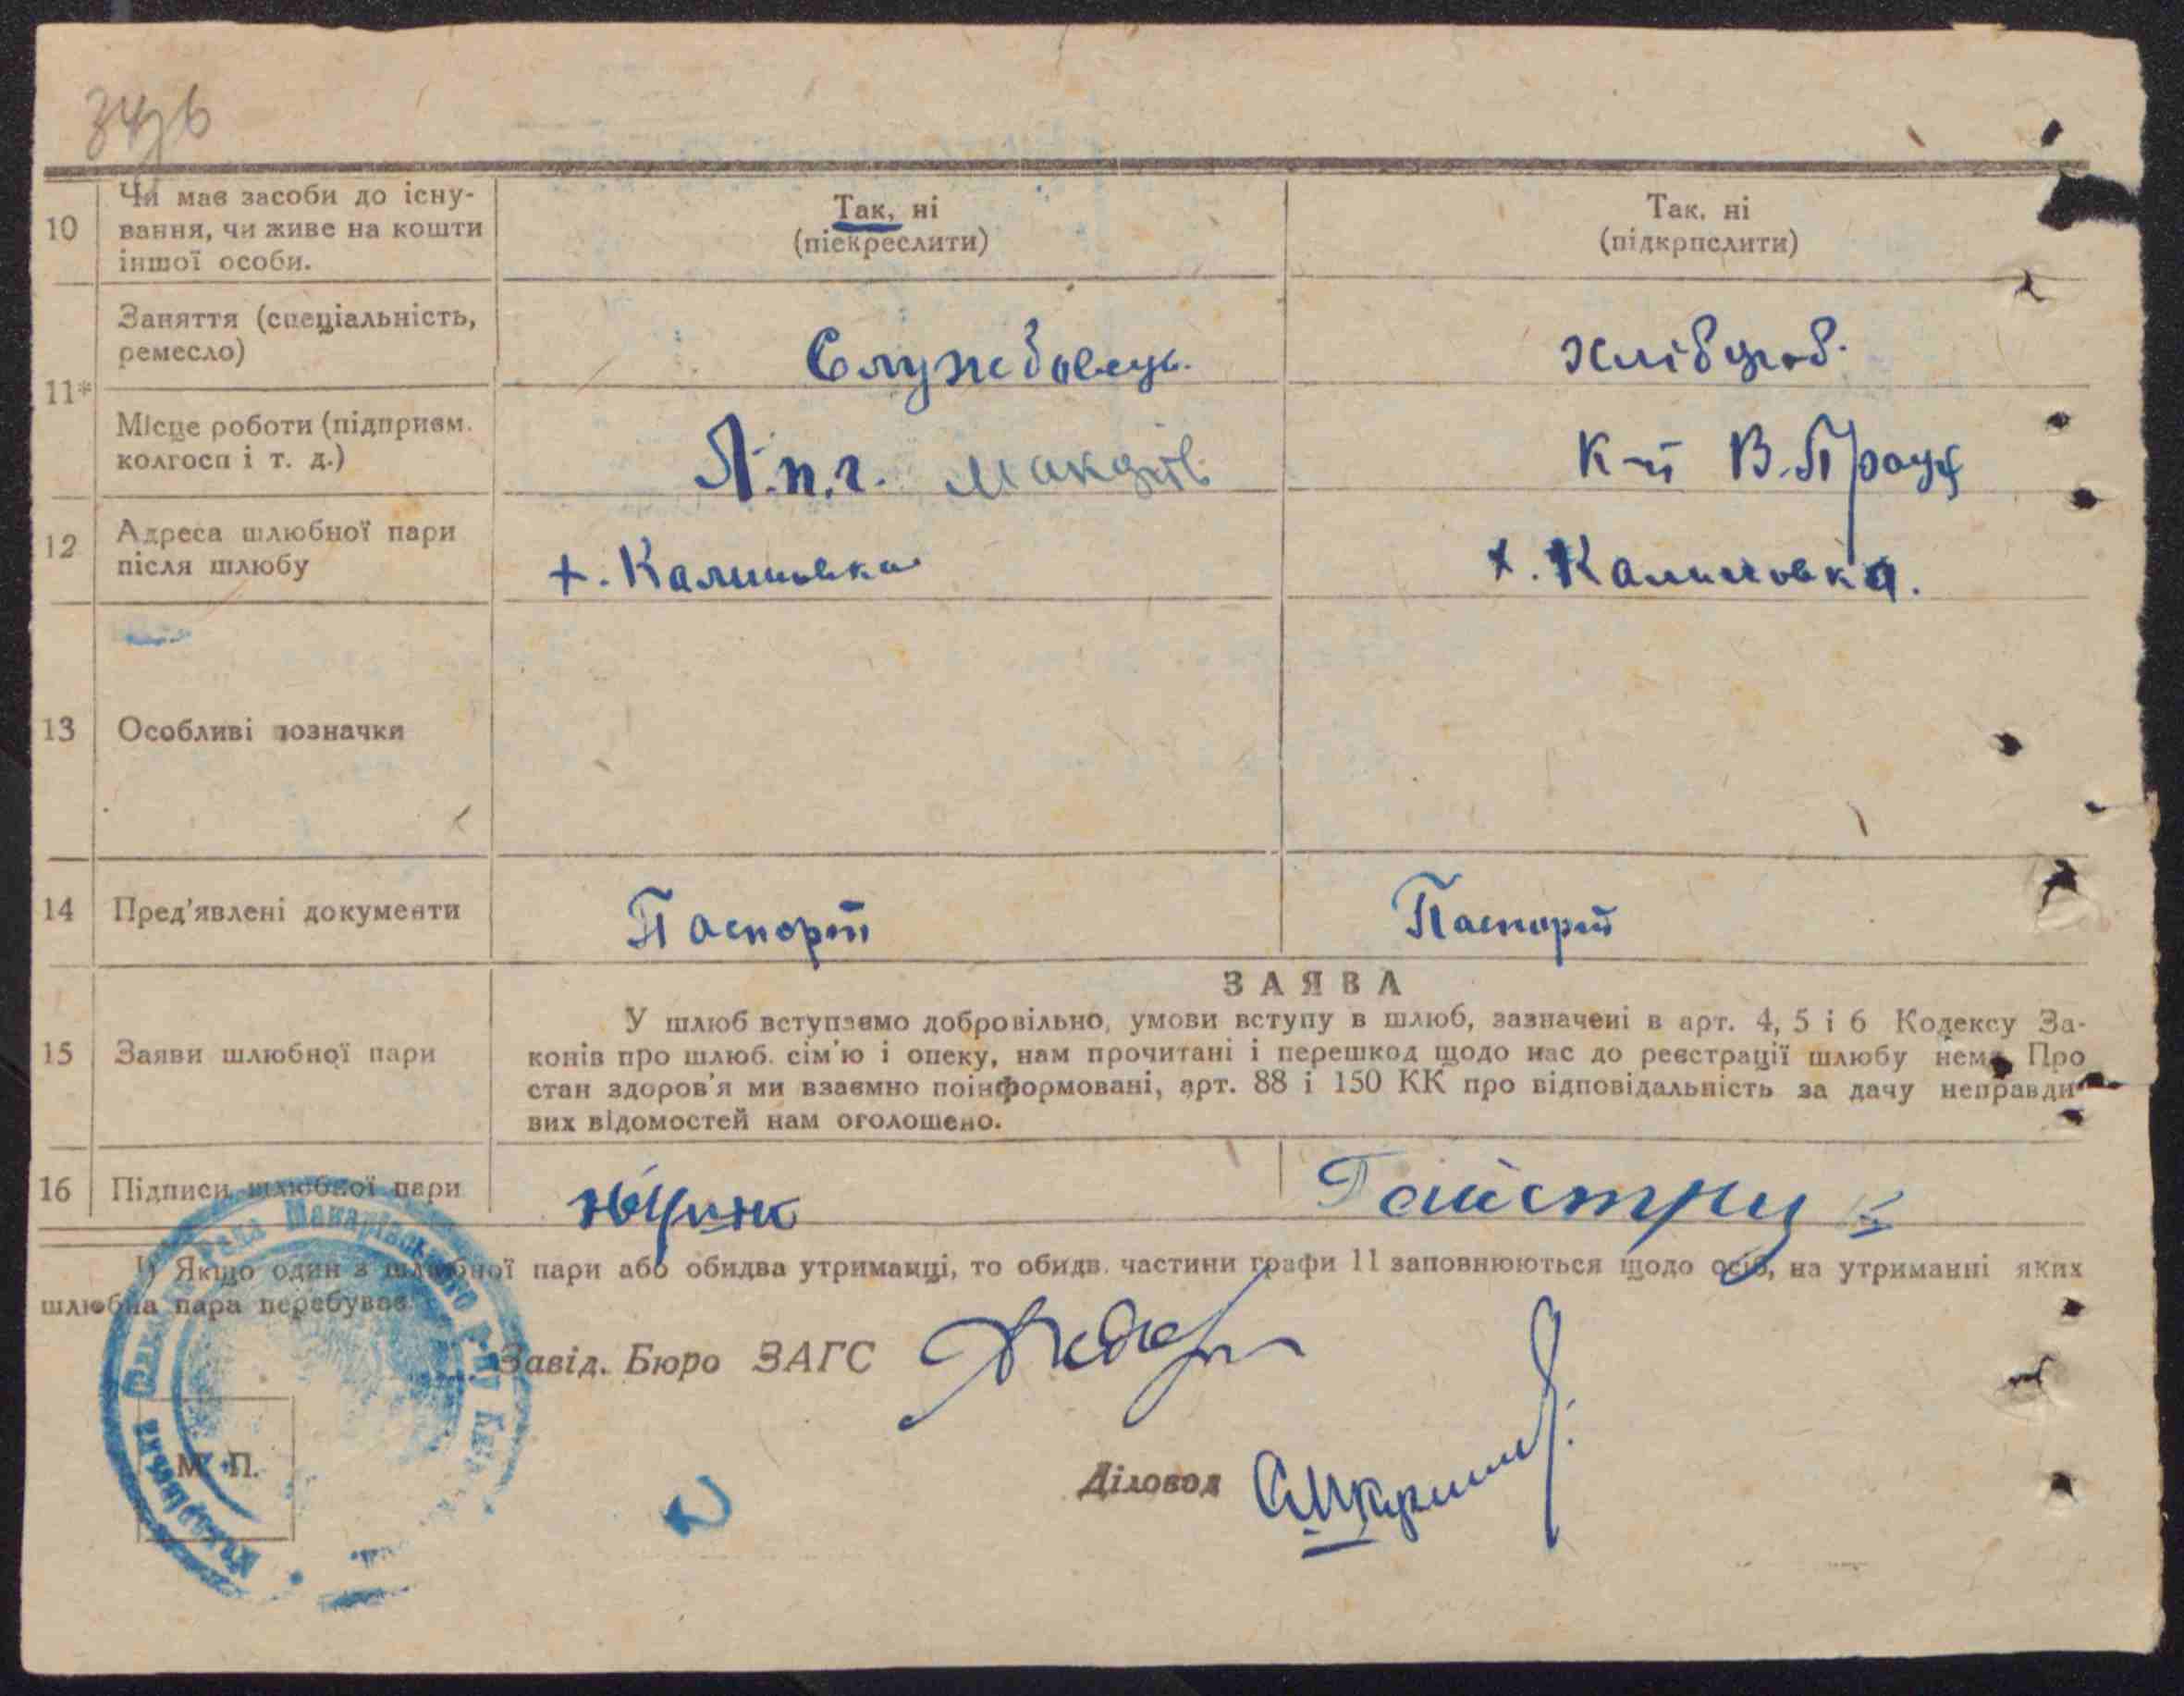 10
Чи має засоби до існу-
вання, чи живе на кошти
іншої особи.
Так, ні
(піекреслити)
Так, ні
(підкрпслити)
11*
Заняття (спеціальність,
ремесло)
Службовець.
Хлібороб.
Місце роботи (підприєм.
колгосп і т. д.)
Л.п.г.
К-п В. Проуж
12
Адреса шлюбної пари
після шлюбу
х. Калиновка
х. Калиновка.
13
Особливі позначки
14
Пред'явлені документи
Паспорт
Паспорт
15
Заяви шлюбної пари
ЗАЯВА
У шлюб вступаємо добровільно, умови вступу в шлюб, зазначені в арт. 4, 5 і 6 Кодексу За-
конів про шлюб. сім'ю і опеку, нам прочитані і перешкод щодо нас до реєстрації шлюбу нема Про
стан здоров'я ми взаємно поінформовані, арт. 88 і 150 КК про відповідальність за дачу неправди-
вих відомостей нам оголошено.
16
Підписи шлюбної пари
Гайструк
¹) Якщо один з шлюбної пари або обидва утриманці, то обидв. частини графи 11 заповнюються щодо осіб, на утриманні яких
шлюбна пара перебуває.
Завід. Бюро ЗАГС
М. П.
Діловод